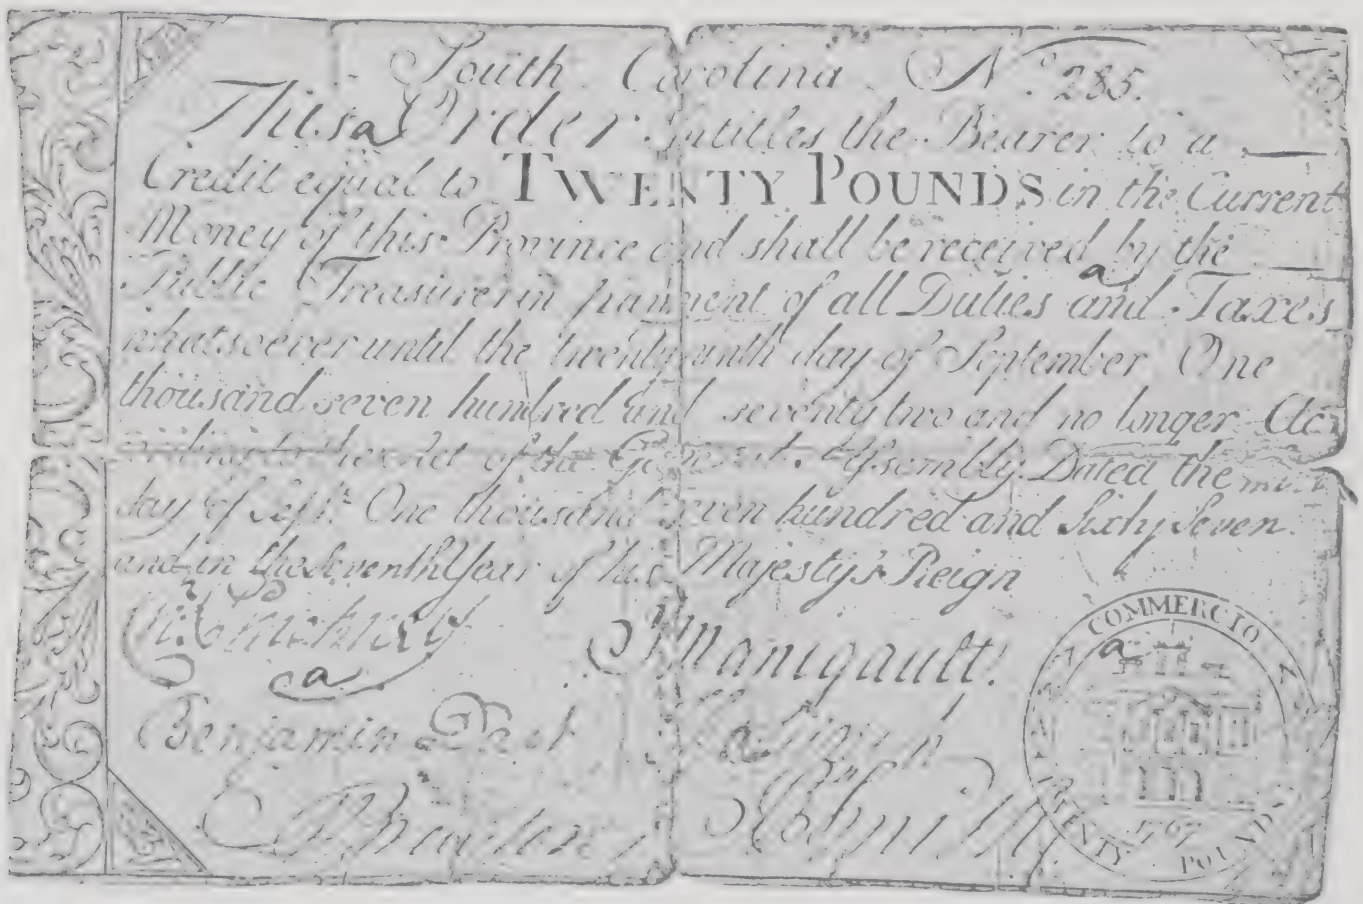 South Carolina N.º 285.
This a Order Entitles the Bearer to a
Credit equal to TWENTY POUNDS in the Current
Money of this Province and shall be received by the
Public Treasurer in payment of all Duties and Taxes
whatsoever until the twenty ninth day of September One
thousand seven hundred and seventy two and no longer
Act of the General Assembly Dated the
day of Sept.r One thousand seven hundred and Sixty Seven
and in the Seventh Year of his Majesty's Reign
P Manigault.
a
Benjamin Dart
COMMERCIO
a
1767
TWENTY POUNDS